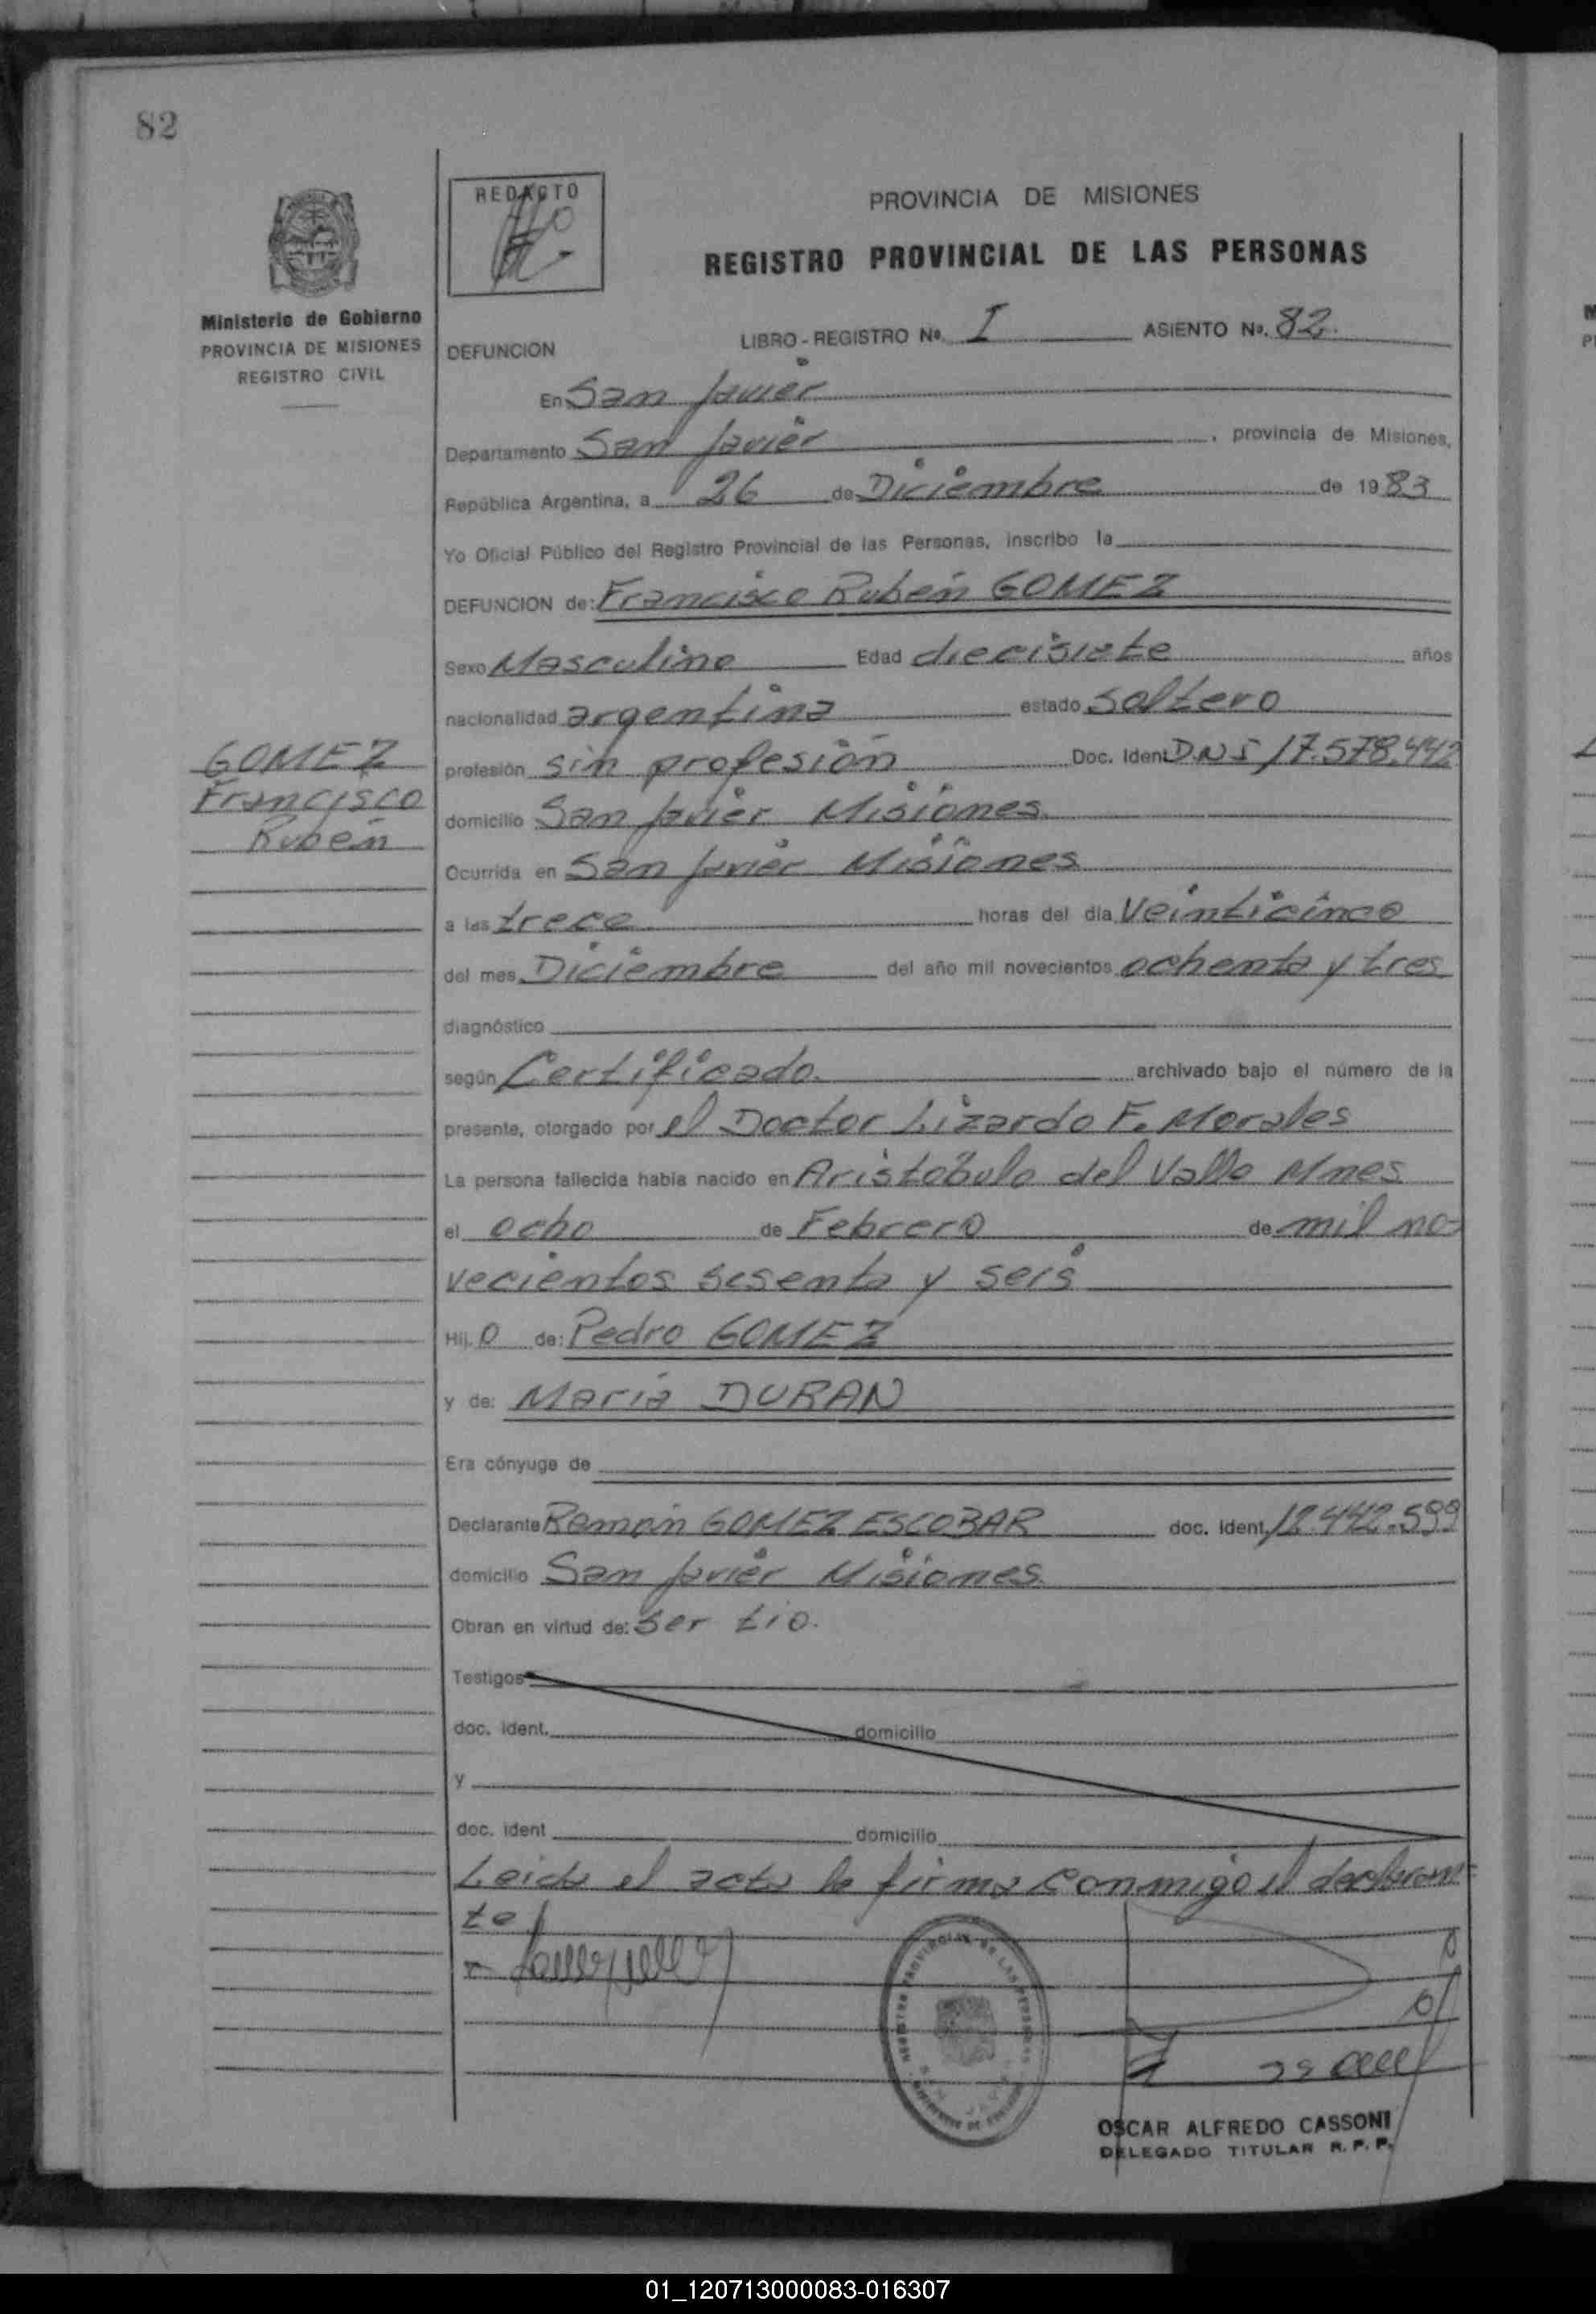 82
REDACTO
PROVINCIA DE MISIONES
REGISTRO PROVINCIAL DE LAS PERSONAS
Ministerio de Gobierno
PROVINCIA DE MISIONES
REGISTRO CIVIL
DEFUNCION
LIBRO - REGISTRO No. I ASIENTO No. 82.
En San Javier
Departamento San Javier, provincia de Misiones,
República Argentina, a 26 de Diciembre de 1983
Yo Oficial Público del Registro Provincial de las Personas, inscribo la
DEFUNCION de: Francisco Rubén GOMEZ
Sexo Masculino Edad diecisiete años
nacionalidad argentina estado soltero
GOMEZ
Francisco
Rubén
profesión sin profesión Doc. Ident D.N.I 17.578.442
domicilio San Javier Misiones
Ocurrida en San Javier Misiones
a las trece horas del día Veinticinco
del mes Diciembre del año mil novecientos ochenta y tres
diagnóstico
según Certificado. archivado bajo el número de la
presente, otorgado por el Doctor Lizardo F. Morales
La persona fallecida había nacido en Aristóbulo del Valle Mnes
el ocho de Febrero de mil no-
vecientos sesenta y seis
Hij. o de: Pedro GOMEZ
y de: María DURAN
Era cónyuge de
Declarante Ramón GOMEZ ESCOBAR doc. ident. 12.442.599
domicilio San Javier Misiones.
Obran en virtud de: ser tio.
Testigos
doc. ident. domicilio
y
doc. ident domicilio
Leida el acta la firma conmigo el declaran-
te
OSCAR ALFREDO CASSONI
DELEGADO TITULAR R. P. P.
01_120713000083-016307